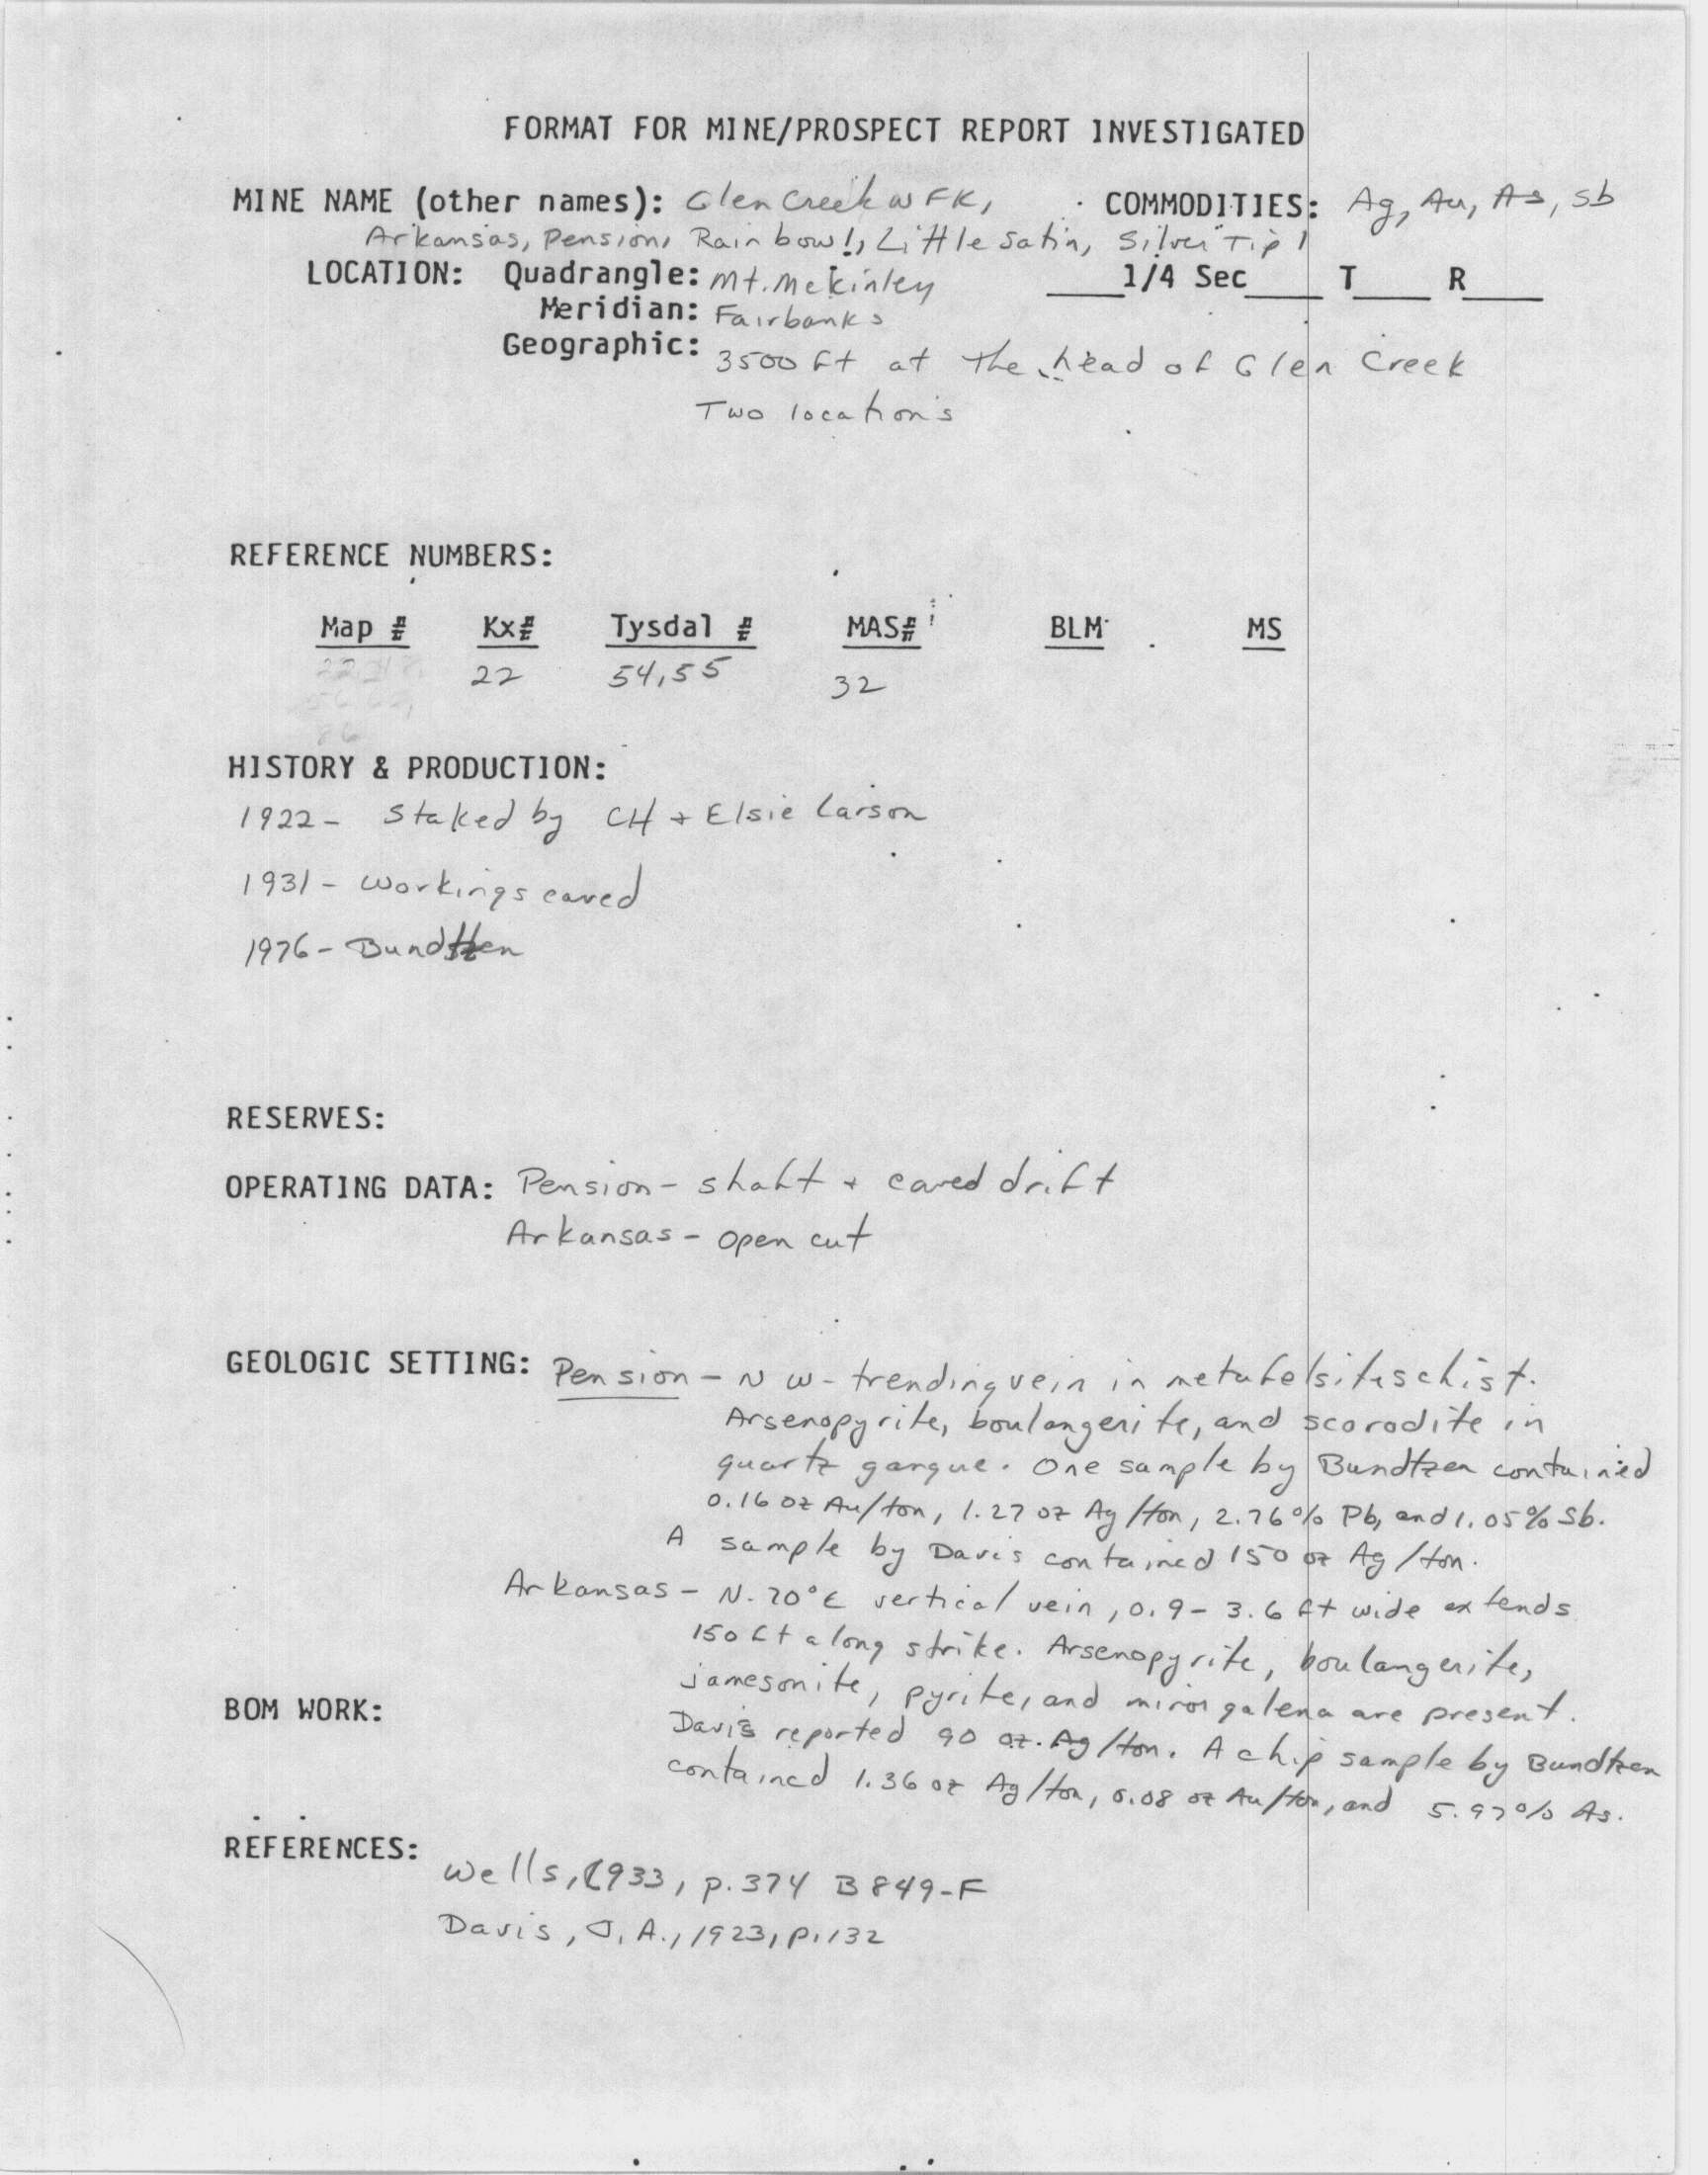 FORMAT FOR MINE/PROSPECT REPORT INVESTIGATED
MINE NAME (other names): Glen Creek W FK, COMMODITIES: Ag, Au, As, Sb
Arkansas, Pension, Rainbow 1, Little Satin, Silver Tip 1
LOCATION: Quadrangle: Mt. McKinley ____1/4 Sec____ T____ R____
Meridian: Fairbanks
Geographic: 3500 ft at the head of Glen Creek
Two locations
REFERENCE NUMBERS:
Map # Kx# Tysdal # MAS# BLM MS
22 54,55 32
HISTORY & PRODUCTION:
1922- Staked by CH + Elsie Larson
1931- Workings caved
1976- Bundtzen
RESERVES:
OPERATING DATA: Pension- shaft + caved drift
Arkansas- open cut
GEOLOGIC SETTING: Pension- NW-trending vein in metafelsite schist.
Arsenopyrite, boulangerite, and scorodite in
quartz gangue. One sample by Bundtzen contained
0.16 oz Au/ton, 1.27 oz Ag/ton, 2.76% Pb, and 1.05% Sb.
A sample by Davis contained 150 oz Ag/ton.
Arkansas- N. 70° E vertical vein, 0.9-3.6 ft wide extends
150 ft along strike. Arsenopyrite, boulangerite,
jamesonite, pyrite, and minor galena are present.
BOM WORK:
Davis reported 90 oz. Ag/ton. A chip sample by Bundtzen
contained 1.36 oz Ag/ton, 0.08 oz Au/ton, and 5.97% As.
REFERENCES:
Wells, 1933, p. 374 B 849-F
Davis, J. A., 1923, p. 132